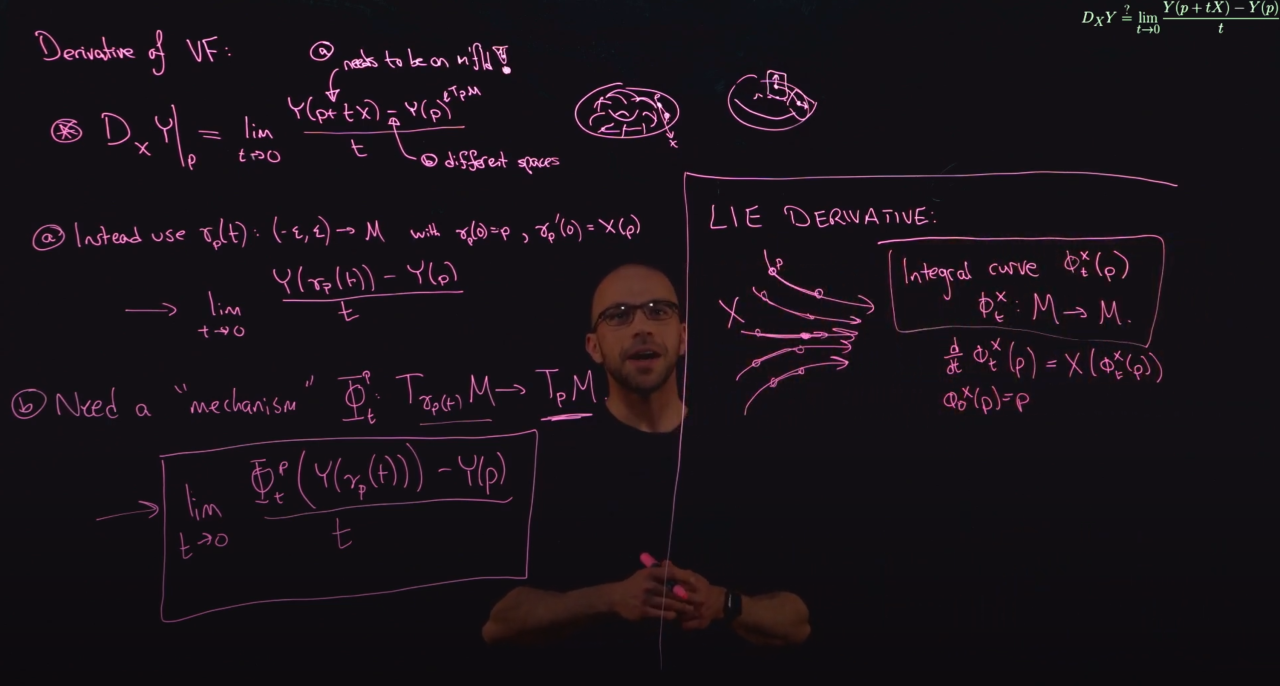 D_X Y ≟ lim_{t→0} (Y(p + tX) − Y(p)) / t
Derivative of VF:
ⓐ needs to be on mfld!
⊛ D_X Y|_p = lim_{t→0} (Y(p+tX) − Y(p)^{∈T_pM}) / t
ⓑ different spaces
p
x
ⓐ Instead use γ_p(t): (-ε, ε) → M with γ_p(0)=p, γ_p'(0)=X(p)
→ lim_{t→0} (Y(γ_p(t)) − Y(p)) / t
ⓑ Need a "mechanism" Φ_t^p: T_{γ_p(t)}M → T_pM.
→ lim_{t→0} (Φ_t^p(Y(γ_p(t))) − Y(p)) / t
LIE DERIVATIVE:
p
X
Integral curve Φ_t^X(p)
Φ_t^X: M → M.
d/dt Φ_t^X(p) = X(Φ_t^X(p))
Φ_0^X(p)=p